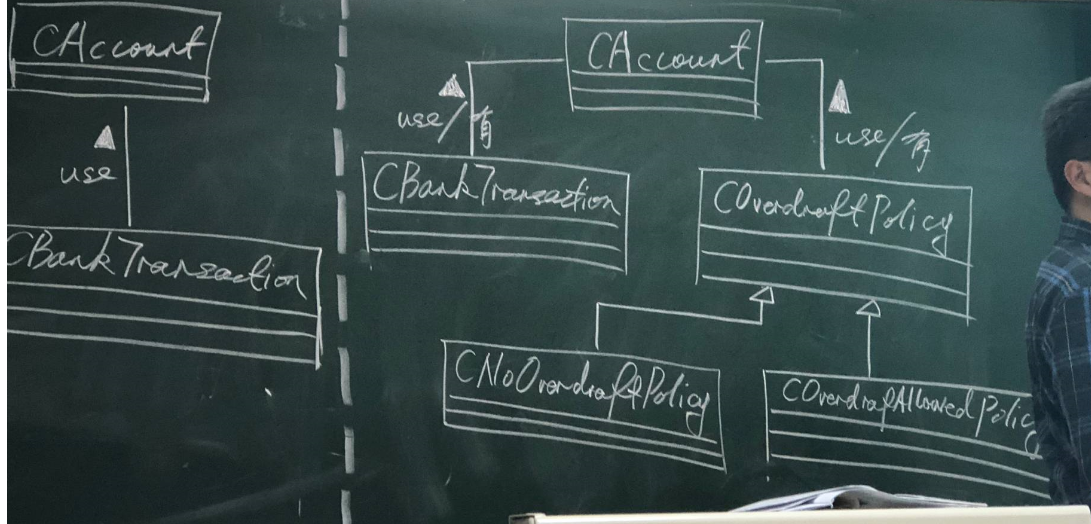 CAccount
use
CBankTransaction
CAccount
use/有
use/有
CBankTransaction
COverdraftPolicy
CNoOverdraftPolicy
COverdrafAllowedPolic